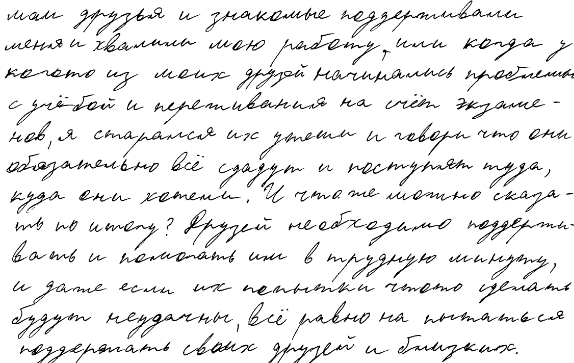 мои друзья и знакомые поддерживали
меня и хвалили мою работу, или когда у
когото из моих друзей начинались проблемы
с учёбой и переживания на счёт экзаме-
нов, я старался их утеши и говори что они
обязательно всё сдадут и поступят туда,
куда они хотели. И что же можно сказа-
ть по итогу? Друзей необходимо поддержи-
вать и помогать им в трудную минуту,
и даже если их попытки чтото сделать
будут неудачны, всё равно на пытаться
поддержать своих друзей и близких.